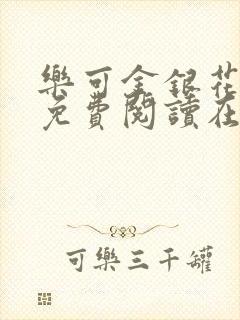 樂可金銀花
免費閱讀在
可樂三千罐